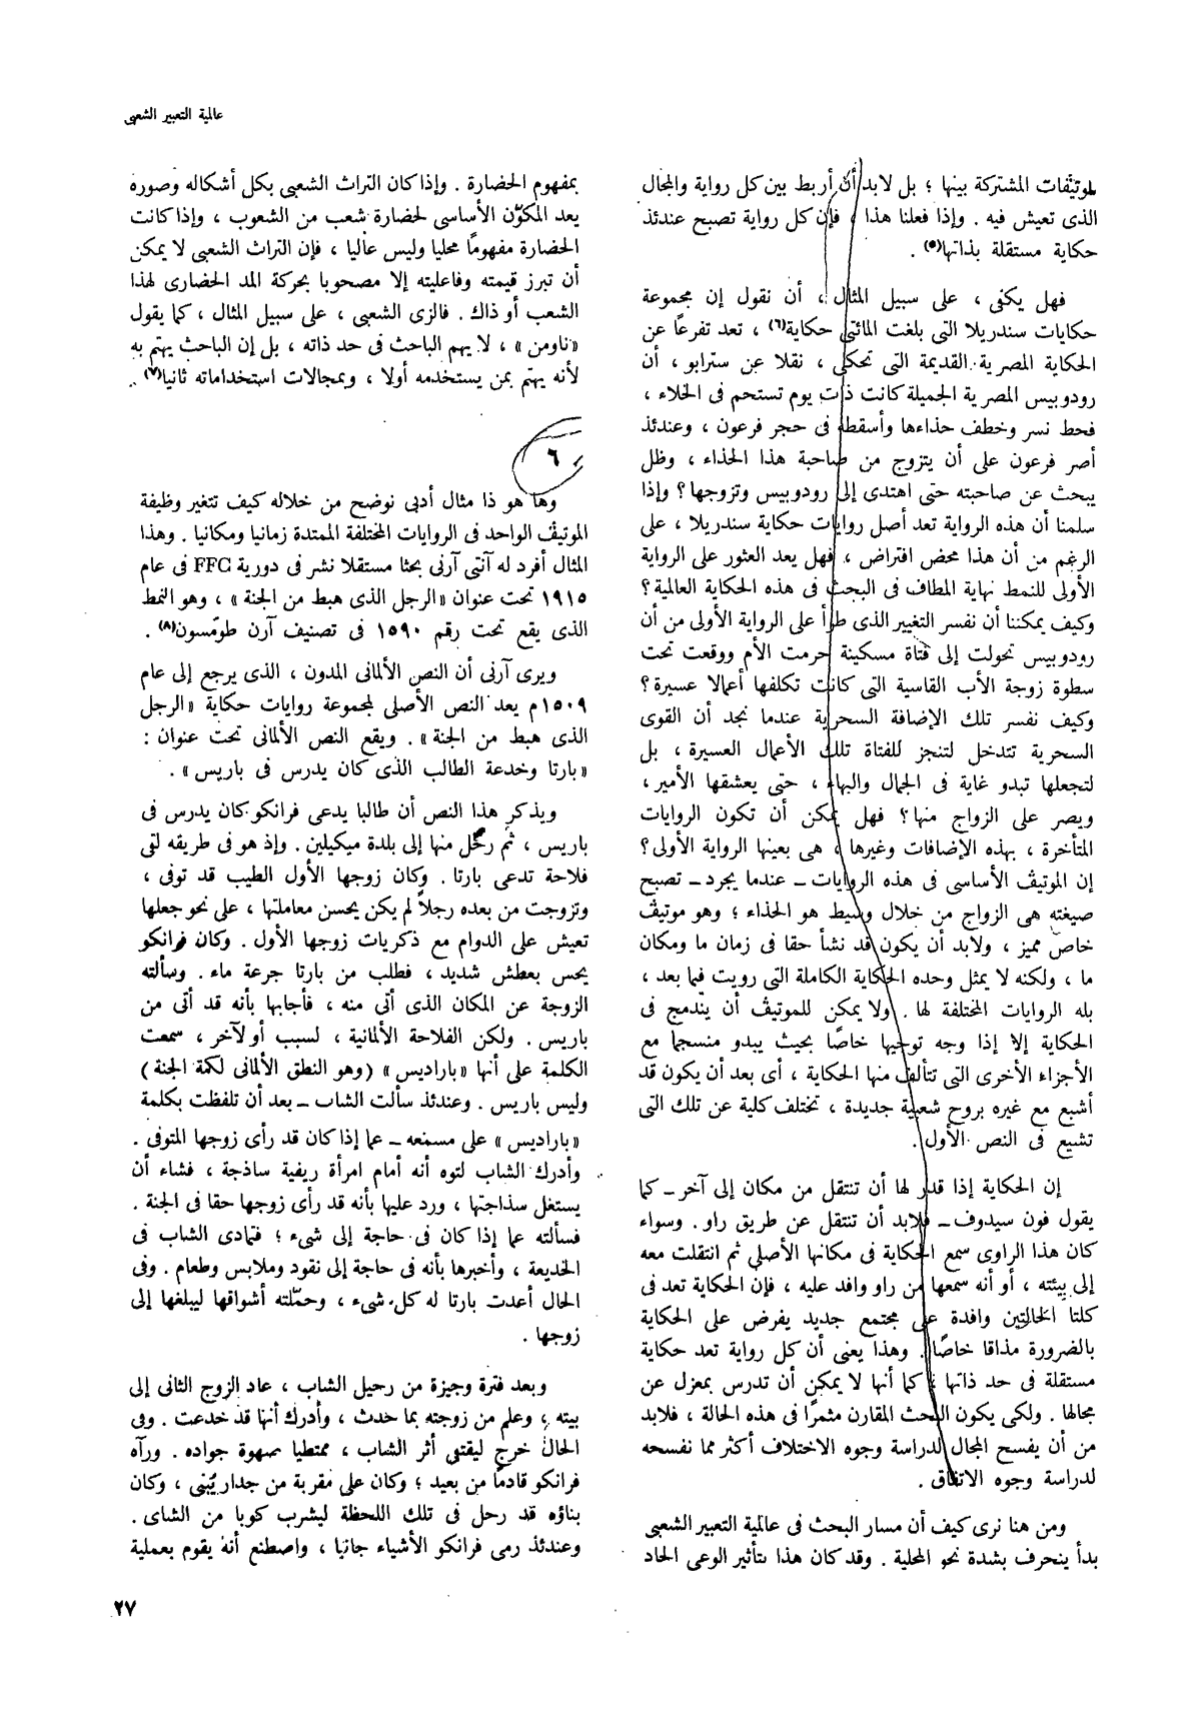 عالمية التعبير الشعبى
للموتيڤات المشتركة بينها ؛ بل لابد أن أربط بين كل رواية والمجال
الذى تعيش فيه . وإذا فعلنا هذا ، فإن كل رواية تصبح عندئذ
حكاية مستقلة بذاتها(٥) .
فهل يكفى ، على سبيل المثال ، أن نقول إن مجموعة
حكايات سندريلا التى بلغت المائتى حكاية(٦) ، تعد تفرعًا عن
الحكاية المصرية القديمة التى تحكى ، نقلا عن سترابو ، أن
رودوبيس المصرية الجميلة كانت ذات يوم تستحم فى الخلاء ،
فحط نسر وخطف حذاءها وأسقطه فى حجر فرعون ، وعندئذ
أصر فرعون على أن يتزوج من صاحبة هذا الحذاء ، وظل
يبحث عن صاحبته حتى اهتدى إلى رودوبيس وتزوجها ؟ وإذا
سلمنا أن هذه الرواية تعد أصل روايات حكاية سندريلا ، على
الرغم من أن هذا محض افتراض ، فهل يعد العثور على الرواية
الأولى للنمط نهاية المطاف فى البحث فى هذه الحكاية العالمية ؟
وكيف يمكننا أن نفسر التغيير الذى طرأ على الرواية الأولى من أن
رودوبيس تحولت إلى فتاة مسكينة حرمت الأم ووقعت تحت
سطوة زوجة الأب القاسية التى كانت تكلفها أعمالا عسيرة ؟
وكيف نفسر تلك الإضافة السحرية عندما نجد أن القوى
السحرية تتدخل لتنجز للفتاة تلك الأعمال العسيرة ، بل
لتجعلها تبدو غاية فى الجمال والبهاء ، حتى يعشقها الأمير ،
ويصر على الزواج منها ؟ فهل يمكن أن تكون الروايات
المتأخرة ، بهذه الإضافات وغيرها ، هى بعينها الرواية الأولى ؟
إن الموتيڤ الأساسى فى هذه الروايات ــ عندما يجرد ــ تصبح
صيغته هى الزواج من خلال وسيط هو الحذاء ؛ وهو موتيڤ
خاص مميز ، ولابد أن يكون قد نشأ حقا فى زمان ما ومكان
ما ، ولكنه لا يمثل وحده الحكاية الكاملة التى رويت فيما بعد ،
بله الروايات المختلفة لها . ولا يمكن للموتيڤ أن يندمج فى
الحكاية إلا إذا وجه توجيها خاصًا بحيث يبدو منسجما مع
الأجزاء الأخرى التى تتألف منها الحكاية ، أى بعد أن يكون قد
أشبع مع غيره بروح شعبية جديدة ، تختلف كلية عن تلك التى
تشيع فى النص الأول .
إن الحكاية إذا قدر لها أن تنتقل من مكان إلى آخر ــ كما
يقول فون سيدوف ــ فلابد أن تنتقل عن طريق راو . وسواء
كان هذا الراوى سمع الحكاية فى مكانها الأصلى ثم انتقلت معه
إلى بيئته ، أو أنه سمعها من راو وافد عليه ، فإن الحكاية تعد فى
كلتا الحالتين وافدة على مجتمع جديد يفرض على الحكاية
بالضرورة مذاقا خاصًا . وهذا يعنى أن كل رواية تعد حكاية
مستقلة فى حد ذاتها ؛ كما أنها لا يمكن أن تدرس بمعزل عن
مجالها . ولكى يكون البحث المقارن مثمرًا فى هذه الحالة ، فلابد
من أن يفسح المجال لدراسة وجوه الاختلاف أكثر مما نفسحه
لدراسة وجوه الاتفاق .
ومن هنا نرى كيف أن مسار البحث فى عالمية التعبير الشعبى
بدأ ينحرف بشدة نحو المحلية . وقد كان هذا بتأثير الوعى الحاد
بمفهوم الحضارة . وإذا كان التراث الشعبى بكل أشكاله وصوره
يعد المكوّن الأساسى لحضارة شعب من الشعوب ، وإذا كانت
الحضارة مفهومًا محليا وليس عالميا ، فإن التراث الشعبى لا يمكن
أن تبرز قيمته وفاعليته إلا مصحوبا بحركة المد الحضارى لهذا
الشعب أو ذاك . فالزى الشعبى ، على سبيل المثال ، كما يقول
«ناومن» ، لا يهم الباحث فى حد ذاته ، بل إن الباحث يهتم به
لأنه يهتم بمن يستخدمه أولا ، وبمجالات استخداماته ثانيا(٧) .
٦
وها هو ذا مثال أدبى نوضح من خلاله كيف تتغير وظيفة
الموتيڤ الواحد فى الروايات المختلفة الممتدة زمانيا ومكانيا . وهذا
المثال أفرد له آنتى آرنى بحثا مستقلا نشر فى دورية FFC فى عام
١٩١٥ تحت عنوان «الرجل الذى هبط من الجنة» ، وهو النمط
الذى يقع تحت رقم ١٥٩٠ فى تصنيف آرن طومسون(٨) .
ويرى آرنى أن النص الألمانى المدون ، الذى يرجع إلى عام
١٥٠٩م يعد النص الأصلى لمجموعة روايات حكاية «الرجل
الذى هبط من الجنة» . ويقع النص الألمانى تحت عنوان :
«بارتا وخدعة الطالب الذى كان يدرس فى باريس» .
ويذكر هذا النص أن طالبا يدعى فرانكو كان يدرس فى
باريس ، ثم رحل منها إلى بلدة ميكيلين . وإذ هو فى طريقه لقى
فلاحة تدعى بارتا . وكان زوجها الأول الطيب قد توفى ،
وتزوجت من بعده رجلاً لم يكن يحسن معاملتها ، على نحو جعلها
تعيش على الدوام مع ذكريات زوجها الأول . وكان فرانكو
يحس بعطش شديد ، فطلب من بارتا جرعة ماء . وسألته
الزوجة عن المكان الذى أتى منه ، فأجابها بأنه قد أتى من
باريس . ولكن الفلاحة الألمانية ، لسبب أو لآخر ، سمعت
الكلمة على أنها «باراديس» (وهو النطق الألمانى لكمة الجنة)
وليس باريس . وعندئذ سألت الشاب ــ بعد أن تلفظت بكلمة
«باراديس» على مسمعه ــ عما إذا كان قد رأى زوجها المتوفى .
وأدرك الشاب لتوه أنه أمام امرأة ريفية ساذجة ، فشاء أن
يستغل سذاجتها ، ورد عليها بأنه قد رأى زوجها حقا فى الجنة .
فسألته عما إذا كان فى حاجة إلى شىء ؛ فتمادى الشاب فى
الخديعة ، وأخبرها بأنه فى حاجة إلى نقود وملابس وطعام . وفى
الحال أعدت بارتا له كل شىء ، وحمّلته أشواقها ليبلغها إلى
زوجها .
وبعد فترة وجيزة من رحيل الشاب ، عاد الزوج الثانى إلى
بيته ، وعلم من زوجته بما حدث ، وأدرك أنها قد خدعت . وفى
الحال خرج ليقتفى أثر الشاب ، ممتطيا صهوة جواده . ورآه
فرانكو قادمًا من بعيد ؛ وكان على مقربة من جدار يُبنى ، وكان
بناؤه قد رحل فى تلك اللحظة ليشرب كوبا من الشاى .
وعندئذ رمى فرانكو الأشياء جانبا ، واصطنع أنه يقوم بعملية
٢٧